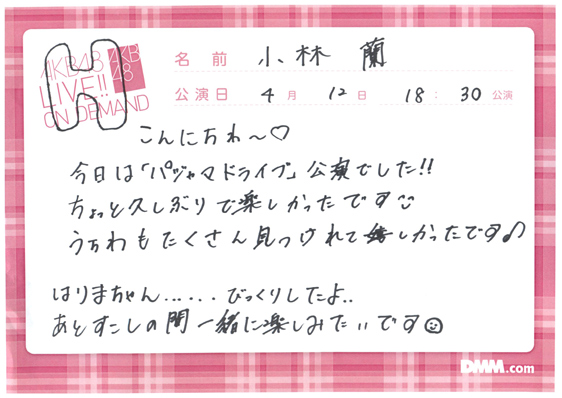 AKB48
LIVE!!
ON DEMAND
AKB
48
H
名前 小林 蘭
公演日 4月 12日 18:30公演
こんにちわ～♡
今日は「パジャマドライブ」公演でした!!
ちょっと久しぶりで楽しかったです☺
うちわもたくさん見つけれて嬉しかったです♪
はりまちゃん......びっくりしたよ..
あとすこしの間一緒に楽しみたいです☺
DMM.com